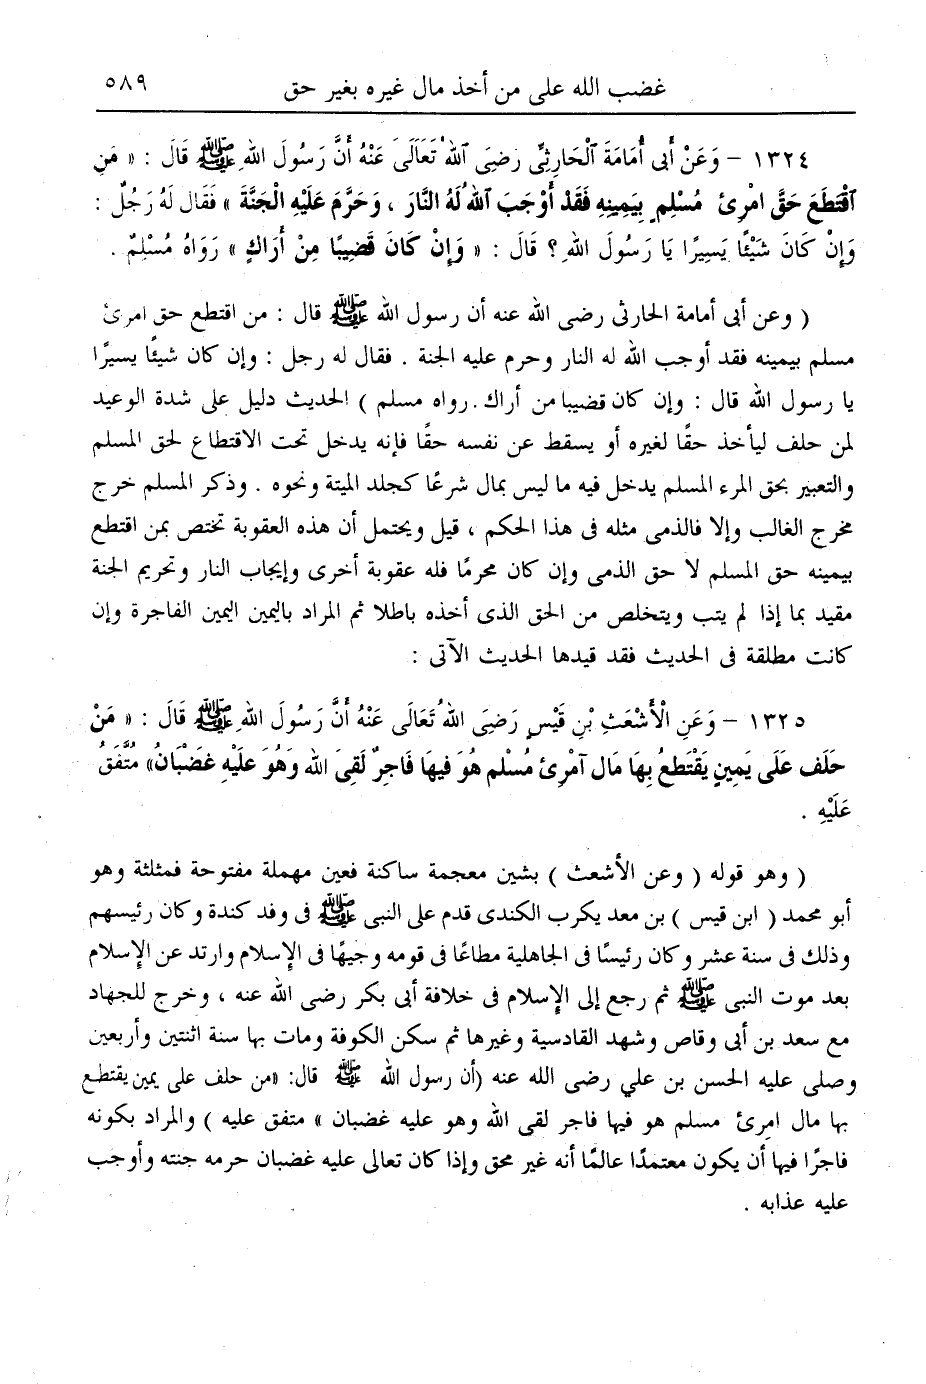 غضب الله على من أخذ مال غيره بغير حق ٥٨٩
١٣٢٤ – وَعَنْ أَبِى أُمَامَةَ ٱلْحَارِثِىِّ رضِىَ ٱللهُ تَعَالَى عَنْهُ أَنَّ رَسُولَ اللهِ ﷺ قَالَ : « مَنِ
ٱقْتَطَعَ حَقَّ امْرِئٍ مُسْلِمٍ بِيَمِينِهِ فَقَدْ أَوْجَبَ ٱللهُ لَهُ النَّارَ ، وَحَرَّمَ عَلَيْهِ الْجَنَّةَ » فَقَال لَهُ رَجُلٌ :
وَإِنْ كَانَ شَيْئًا يَسِيرًا يَا رَسُولَ اللهِ ؟ قَالَ : « وَإِنْ كَانَ قَضِيبًا مِنْ أَرَاكٍ » رَوَاهُ مُسْلِمٌ .
( وعن أبى أمامة الحارثى رضى الله عنه أن رسول الله ﷺ قال : من اقتطع حق امرئ
مسلم بيمينه فقد أوجب الله له النار وحرم عليه الجنة . فقال له رجل : وإن كان شيئًا يسيرًا
يا رسول الله قال : وإن كان قضيبا من أراك . رواه مسلم ) الحديث دليل على شدة الوعيد
لمن حلف ليأخذ حقًا لغيره أو يسقط عن نفسه حقًا فإنه يدخل تحت الاقتطاع لحق المسلم
والتعبير بحق المرء المسلم يدخل فيه ما ليس بمال شرعًا كجلد الميتة ونحوه . وذكر المسلم خرج
مخرج الغالب وإلا فالذمى مثله فى هذا الحكم ، قيل ويحتمل أن هذه العقوبة تختص بمن اقتطع
بيمينه حق المسلم لا حق الذمى وإن كان محرمًا فله عقوبة أخرى وإيجاب النار وتحريم الجنة
مقيد بما إذا لم يتب ويتخلص من الحق الذى أخذه باطلا ثم المراد باليمين اليمين الفاجرة وإن
كانت مطلقة فى الحديث فقد قيدها الحديث الآتى :
١٣٢٥ – وَعَنِ الْأَشْعَثِ بْنِ قَيْسٍ رَضِىَ اللهُ تَعَالَى عَنْهُ أَنَّ رَسُولَ اللهِ ﷺ قَالَ : « مَنْ
حَلَفَ عَلَى يَمِينٍ يَقْتَطِعُ بِهَا مَال آمْرِئٍ مُسْلِمٍ هُوَ فِيهَا فَاجِرٌ لَقِىَ الله وَهُوَ عَلَيْهِ غَضْبَانُ» مُتَّفَقٌ
عَلَيْهِ .
( وهو قوله ( وعن الأشعث ) بشين معجمة ساكنة فعين مهملة مفتوحة فمثلثة وهو
أبو محمد ( ابن قيس ) بن معد يكرب الكندى قدم على النبى ﷺ فى وفد كندة وكان رئيسهم
وذلك فى سنة عشر وكان رئيسًا فى الجاهلية مطاعًا فى قومه وجيهًا فى الإسلام وارتد عن الإسلام
بعد موت النبى ﷺ ثم رجع إلى الإسلام فى خلافة أبى بكر رضى الله عنه ، وخرج للجهاد
مع سعد بن أبى وقاص وشهد القادسية وغيرها ثم سكن الكوفة ومات بها سنة اثنتين وأربعين
وصلى عليه الحسن بن علي رضى الله عنه (أن رسول الله ﷺ قال: «من حلف على يمين يقتطع
بها مال امرئ مسلم هو فيها فاجر لقى الله وهو عليه غضبان » متفق عليه ) والمراد بكونه
فاجرًا فيها أن يكون معتمدًا عالمًا أنه غير محق وإذا كان تعالى عليه غضبان حرمه جنته وأوجب
عليه عذابه .